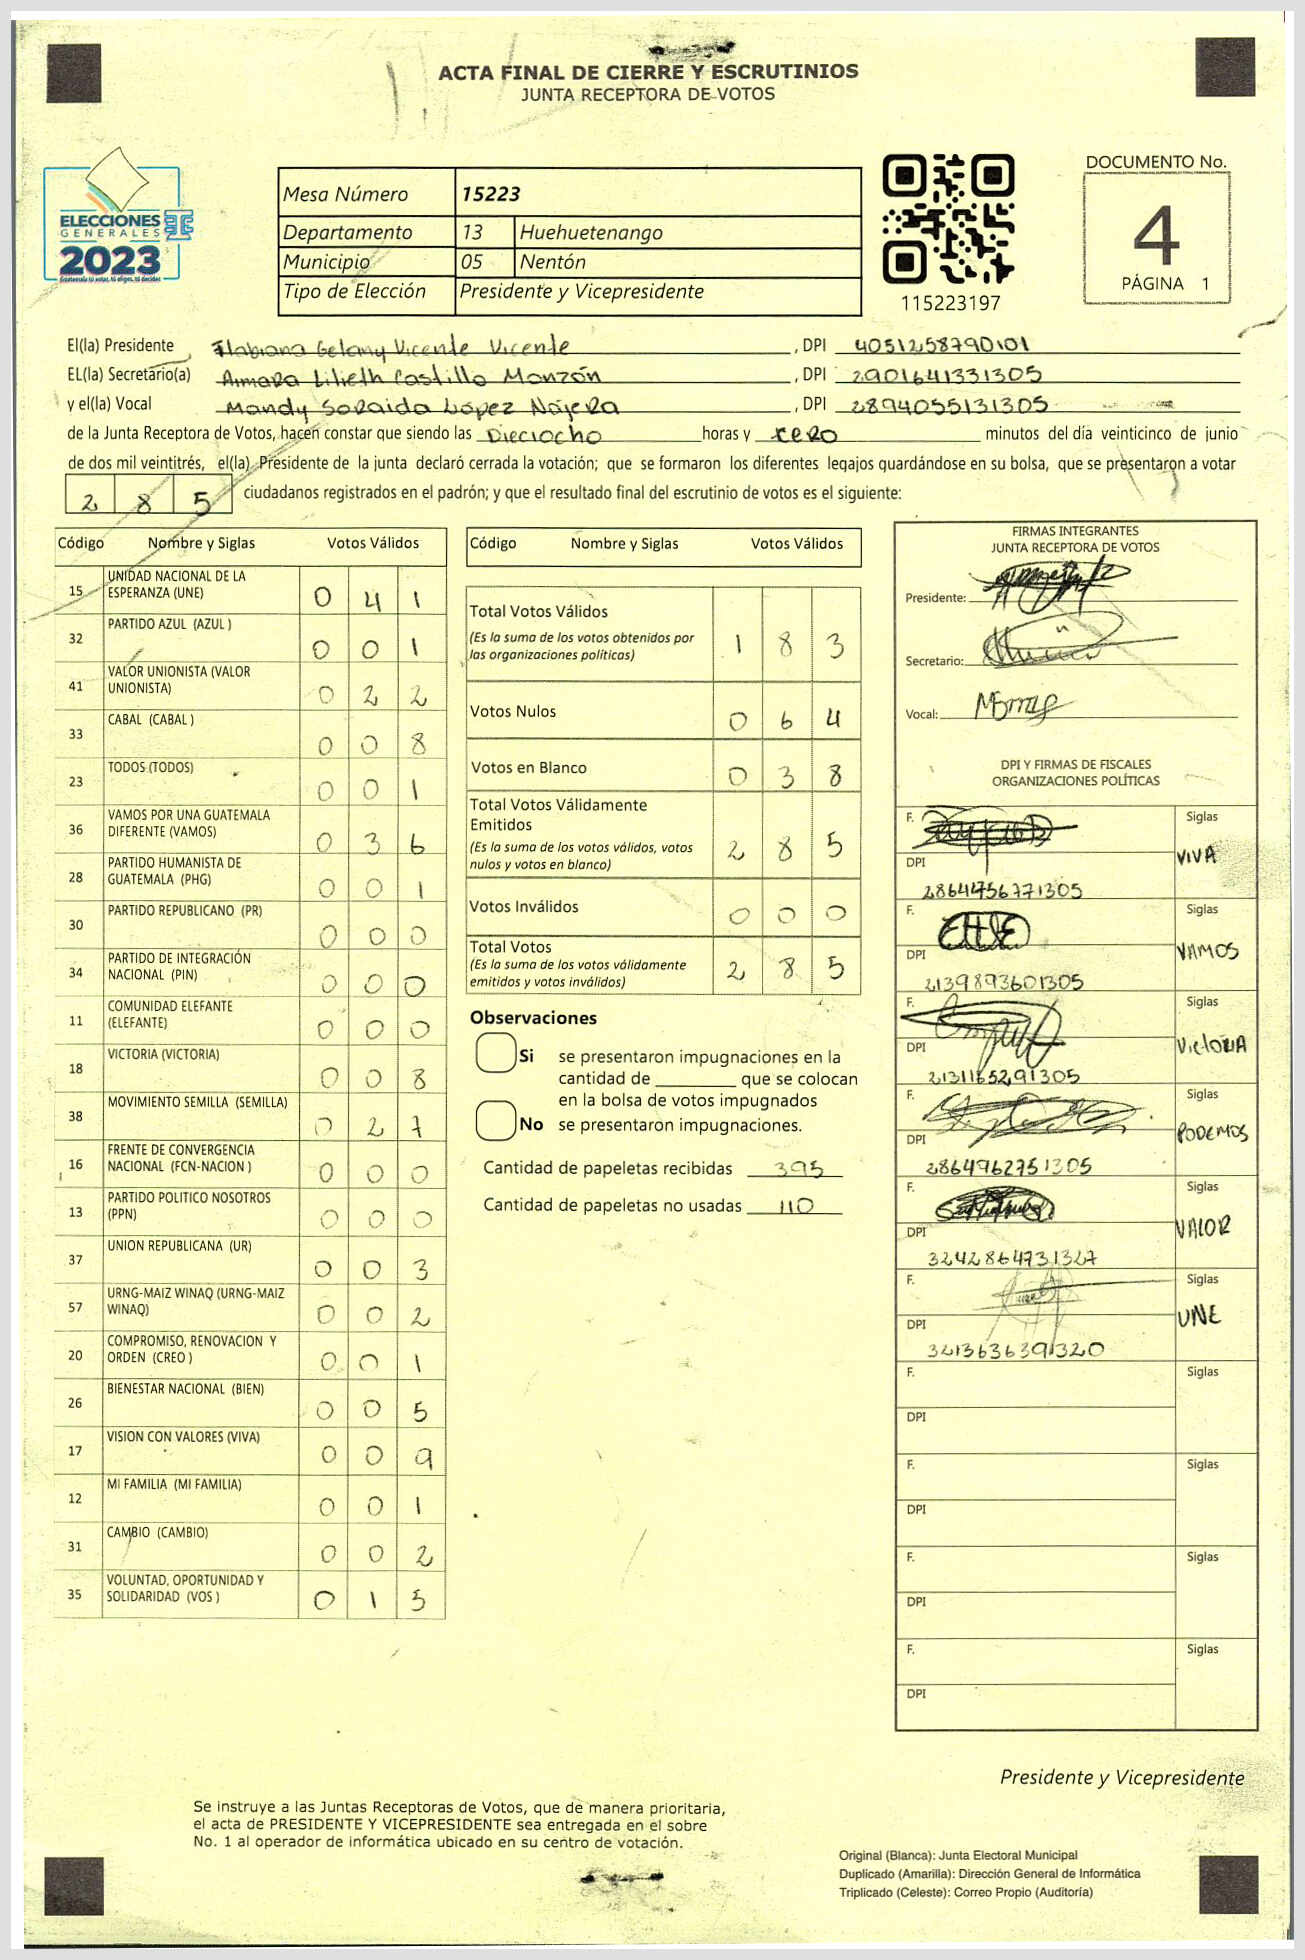 ACTA FINAL DE CIERRE Y ESCRUTINIOS
JUNTA RECEPTORA DE VOTOS
ELECCIONES
GENERALES
2023
Mesa Número 15223
Departamento 13 Huehuetenango
Municipio 05 Nentón
Tipo de Elección Presidente y Vicepresidente
115223197
DOCUMENTO No.
4
PÁGINA 1
El(la) Presidente Flabiana Gelany Vicente Vicente, DPI 4051258790101
EL(la) Secretario(a) Amara Lilieth Castillo Monzón, DPI 2901641331305
y el(la) Vocal Mandy Soraida López Nájera, DPI 2894055131305
de la Junta Receptora de Votos, hacen constar que siendo las Dieciocho horas y cero minutos del día veinticinco de junio
de dos mil veintitrés, el(la) Presidente de la junta declaró cerrada la votación; que se formaron los diferentes legajos guardándose en su bolsa, que se presentaron a votar
285 ciudadanos registrados en el padrón; y que el resultado final del escrutinio de votos es el siguiente:
Código Nombre y Siglas Votos Válidos
15 UNIDAD NACIONAL DE LA ESPERANZA (UNE) 0 4 1
32 PARTIDO AZUL (AZUL ) 0 0 1
41 VALOR UNIONISTA (VALOR UNIONISTA) 0 2 2
33 CABAL (CABAL ) 0 0 8
23 TODOS (TODOS) 0 0 1
36 VAMOS POR UNA GUATEMALA DIFERENTE (VAMOS) 0 3 6
28 PARTIDO HUMANISTA DE GUATEMALA (PHG) 0 0 1
30 PARTIDO REPUBLICANO (PR) 0 0 0
34 PARTIDO DE INTEGRACIÓN NACIONAL (PIN) 0 0 0
11 COMUNIDAD ELEFANTE (ELEFANTE) 0 0 0
18 VICTORIA (VICTORIA) 0 0 8
38 MOVIMIENTO SEMILLA (SEMILLA) 0 2 7
16 FRENTE DE CONVERGENCIA NACIONAL (FCN-NACION ) 0 0 0
13 PARTIDO POLITICO NOSOTROS (PPN) 0 0 0
37 UNION REPUBLICANA (UR) 0 0 3
57 URNG-MAIZ WINAQ (URNG-MAIZ WINAQ) 0 0 2
20 COMPROMISO, RENOVACION Y ORDEN (CREO ) 0 0 1
26 BIENESTAR NACIONAL (BIEN) 0 0 5
17 VISION CON VALORES (VIVA) 0 0 9
12 MI FAMILIA (MI FAMILIA) 0 0 1
31 CAMBIO (CAMBIO) 0 0 2
35 VOLUNTAD, OPORTUNIDAD Y SOLIDARIDAD (VOS ) 0 1 5
Código Nombre y Siglas Votos Válidos
Total Votos Válidos 1 8 3
(Es la suma de los votos obtenidos por
las organizaciones políticas)
Votos Nulos 0 6 4
Votos en Blanco 0 3 8
Total Votos Válidamente
Emitidos 2 8 5
(Es la suma de los votos válidos, votos
nulos y votos en blanco)
Votos Inválidos 0 0 0
Total Votos 2 8 5
(Es la suma de los votos válidamente
emitidos y votos inválidos)
Observaciones
Si se presentaron impugnaciones en la
cantidad de ________ que se colocan
en la bolsa de votos impugnados
No se presentaron impugnaciones.
Cantidad de papeletas recibidas 395
Cantidad de papeletas no usadas 110
FIRMAS INTEGRANTES
JUNTA RECEPTORA DE VOTOS
Presidente:
Secretario:
Vocal:
DPI Y FIRMAS DE FISCALES
ORGANIZACIONES POLÍTICAS
F. Siglas VIVA
DPI 2864756771305
F. Siglas VAMOS
DPI 2139893601305
F. Siglas VICTORIA
DPI 2131165291305
F. Siglas PODEMOS
DPI 2864962751305
F. Siglas VALOR
DPI 3242864731327
F. Siglas UNE
DPI 3213636391320
F. Siglas
DPI
F. Siglas
DPI
F. Siglas
DPI
F. Siglas
DPI
Presidente y Vicepresidente
Se instruye a las Juntas Receptoras de Votos, que de manera prioritaria,
el acta de PRESIDENTE Y VICEPRESIDENTE sea entregada en el sobre
No. 1 al operador de informática ubicado en su centro de votación.
Original (Blanca): Junta Electoral Municipal
Duplicado (Amarilla): Dirección General de Informática
Triplicado (Celeste): Correo Propio (Auditoría)